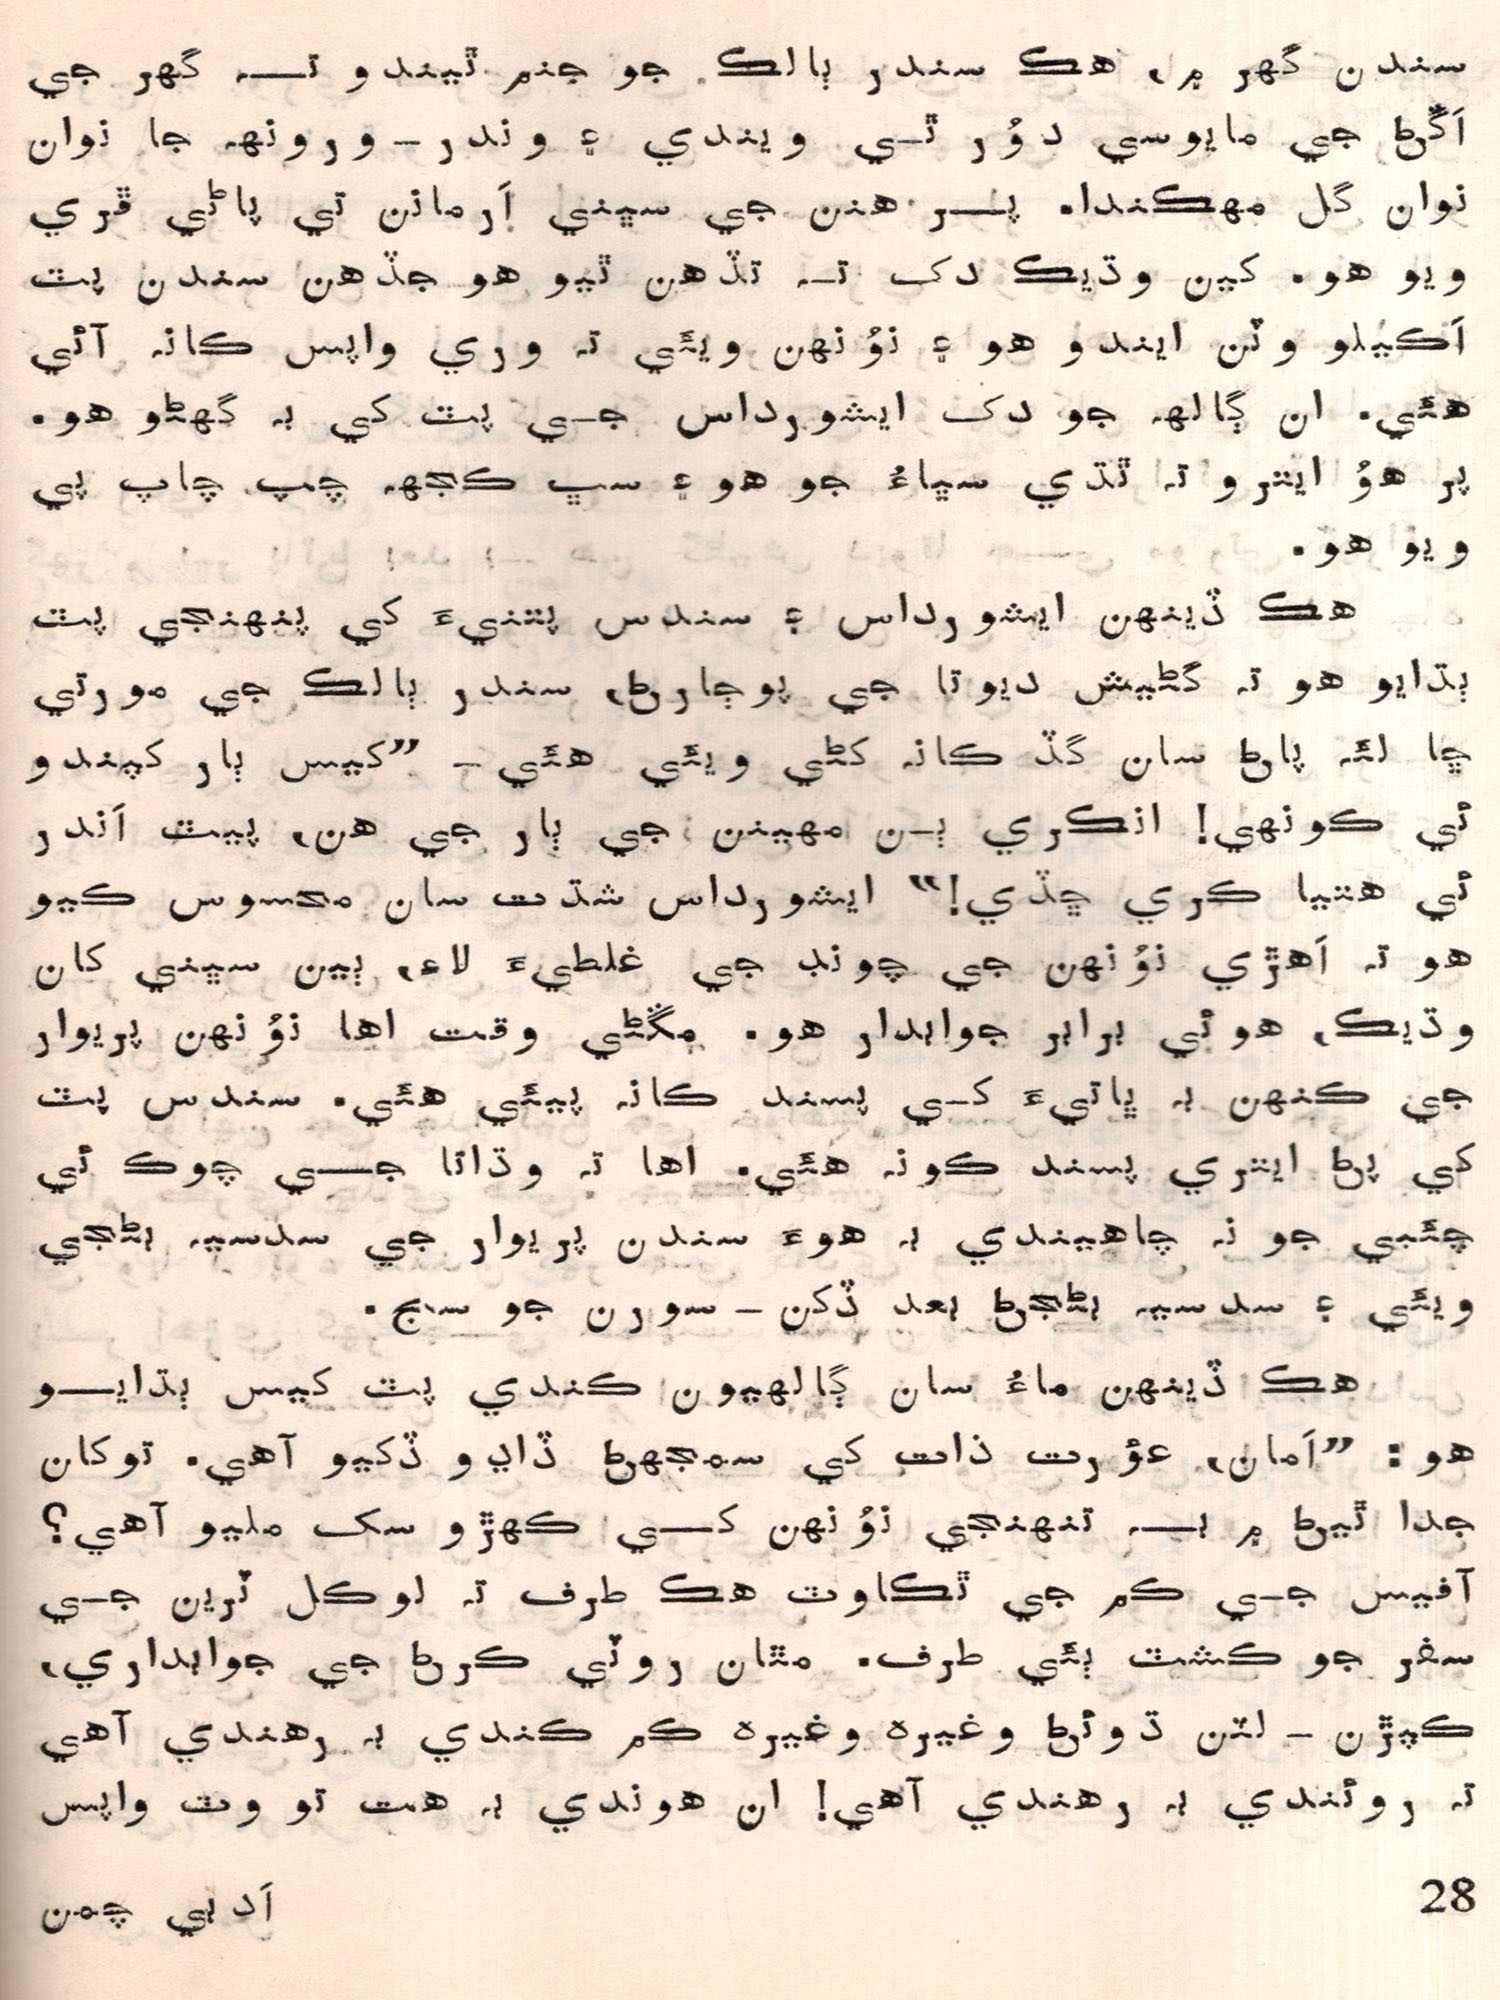 سندن گھر ۾، هڪ سندر ٻالڪ جو جنم ٿيندو تہ گھر جي
اَڱڻ جي مايوسي دوُر ٿي ويندي ۽ وندر ـ ورونهہ جا نوان
نوان گل مهڪندا. پر هنن جي سڀني اَرمانن تي پاڻي ڦري
ويو هو. کين وڌيڪ دک تہ تڏهن ٿيو هو جڏهن سندن پٽ
اَڪيلو وٽن ايندو هو ۽ نوُنهن ويئي تہ وري واپس ڪانہ آئي
هئي. ان ڳالهہ جو دک ايشورداس جي پٽ کي بہ گھڻو هو.
پر هوُ ايترو تہ ٿڌي سڀاءُ جو هو ۽ سڀ ڪجهہ چپ چاپ پي
ويو هو.
هڪ ڏينهن ايشورداس ۽ سندس پتنيءَ کي پنهنجي پٽ
ٻڌايو هو تہ گڻيش ديوتا جي پوڄارڻ، سندر ٻالڪ جي مورتي
ڇا لئہ پاڻ سان گڏ ڪانہ کڻي ويئي هئي ـ ”کيس ٻار کپندو
ئي ڪونهي! انڪري ٻن مهينن جي ٻار جي هن، پيٽ اَندر
ئي هتيا ڪري ڇڏي!“ ايشورداس شدت سان محسوس ڪيو
هو تہ اَهڙي نوُنهن جي چونڊ جي غلطيءَ لاءِ، ٻين سڀني کان
وڌيڪ، هو ئي برابر جوابدار هو. مڱڻي وقت اها نوُنهن پريوار
جي ڪنهن بہ ڀاتيءَ کي پسند ڪانہ پيئي هئي. سندس پٽ
کي پڻ ايتري پسند ڪونہ هئي. اها تہ وڌاتا جي چوڪ ئي
چئبي جو نہ چاهيندي بہ هوءَ سندن پريوار جي سدسيہ بڻجي
ويئي ۽ سدسيہ بڻجڻ بعد ڏکن ـ سورن جو سبب.
هڪ ڏينهن ماءُ سان ڳالهيون ڪندي پٽ کيس ٻڌايو
هو: ”اَمان، عوُرت ذات کي سمجهڻ ڏاڍو ڏکيو آهي. توکان
جدا ٿيڻ ۾ بہ تنهنجي نوُنهن کي ڪهڙو سک مليو آهي؟
آفيس جي ڪم جي ٿڪاوٽ هڪ طرف تہ لوڪل ٽرين جي
سفر جو ڪشٽ ٻئي طرف. مٿان روٽي ڪرڻ جي جوابداري،
ڪپڙن ـ لٽن ڌوئڻ وغيره وغيره ڪم ڪندي بہ رهندي آهي
تہ روئندي بہ رهندي آهي! ان هوندي بہ هت تو وٽ واپس
28
اَدبي چمن